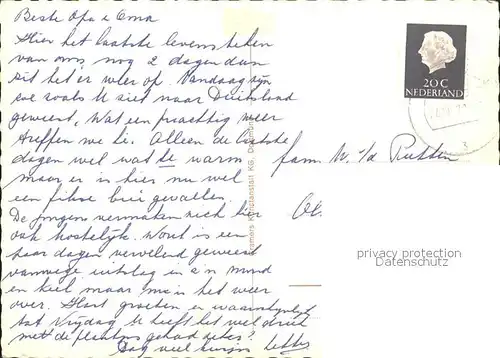 Beste Opa & Oma
Hier het laatste levensteken
van ons, nog 2 dagen dan
zit het er weer op. Vandaag zijn
we zoals U ziet naar Duitsland
geweest, Wat een prachtig weer
treffen we he. Alleen de laatste
dagen wel wat te warm
maar er is hier nu wel
een fikse bui gevallen.
De jongens vermaken zich hier
ook kostelijk. Wout is een
paar dagen vervelend geweest
vanwege uitslag in z'n mond
en keel maar is het weer
over. Hart. groeten en waarschijnlijk
tot Vrijdag U heeft het wel druk
met de planten gehad zeker?
Dag veel kusjes
20 C
NEDERLAND
fam. W. v/d Putten
privacy protection
Datenschutz